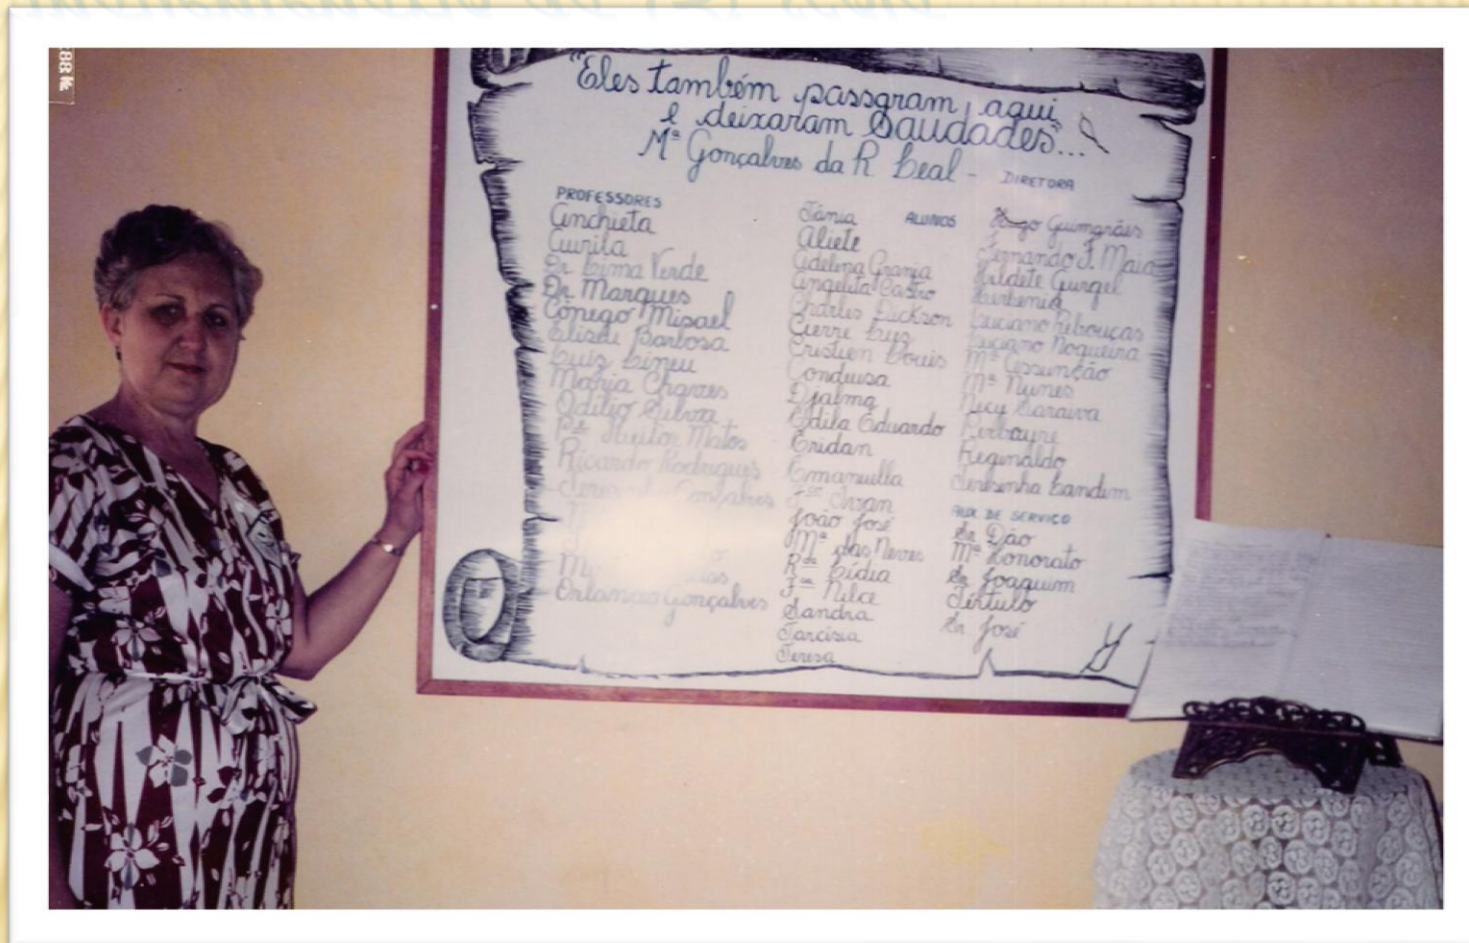 "Eles também passaram aqui
e deixaram Saudades"...
Mª Gonçalves da R Leal - DIRETORA
PROFESSORES
Anchieta
Aurila
Dr Lima Verde
Dr Marques
Cônego Misael
Eliseu Barbosa
Luiz Lineu
Maria Chaves
Odílio Silva
Pe Heitor Matos
Ricardo Rodrigues
Gonçalves
Orlando Gonçalves
ALUNOS
Tânia
Aliete
Adelina Granja
Angelita Castro
Charles Dickson
Cierre Luys
Cristien Louis
Conduisa
Djalma
Edila Eduardo
Eridan
Emanuella
Fco Irvan
João José
Mª das Neves
Rda Lídia
Fca Nilce
Sandra
Tarcísia
Teresa
Hugo Guimarães
Fernando F. Maia
Hildete Gurgel
Luciano Rebouças
Luciano Nogueira
Mª Assunção
Mª Nunes
Necy Saraiva
Reginaldo
Teresinha Landim
AUX DE SERVIÇO
Sr Dão
Mª Honorato
Sr Joaquim
Tértulo
Sr José